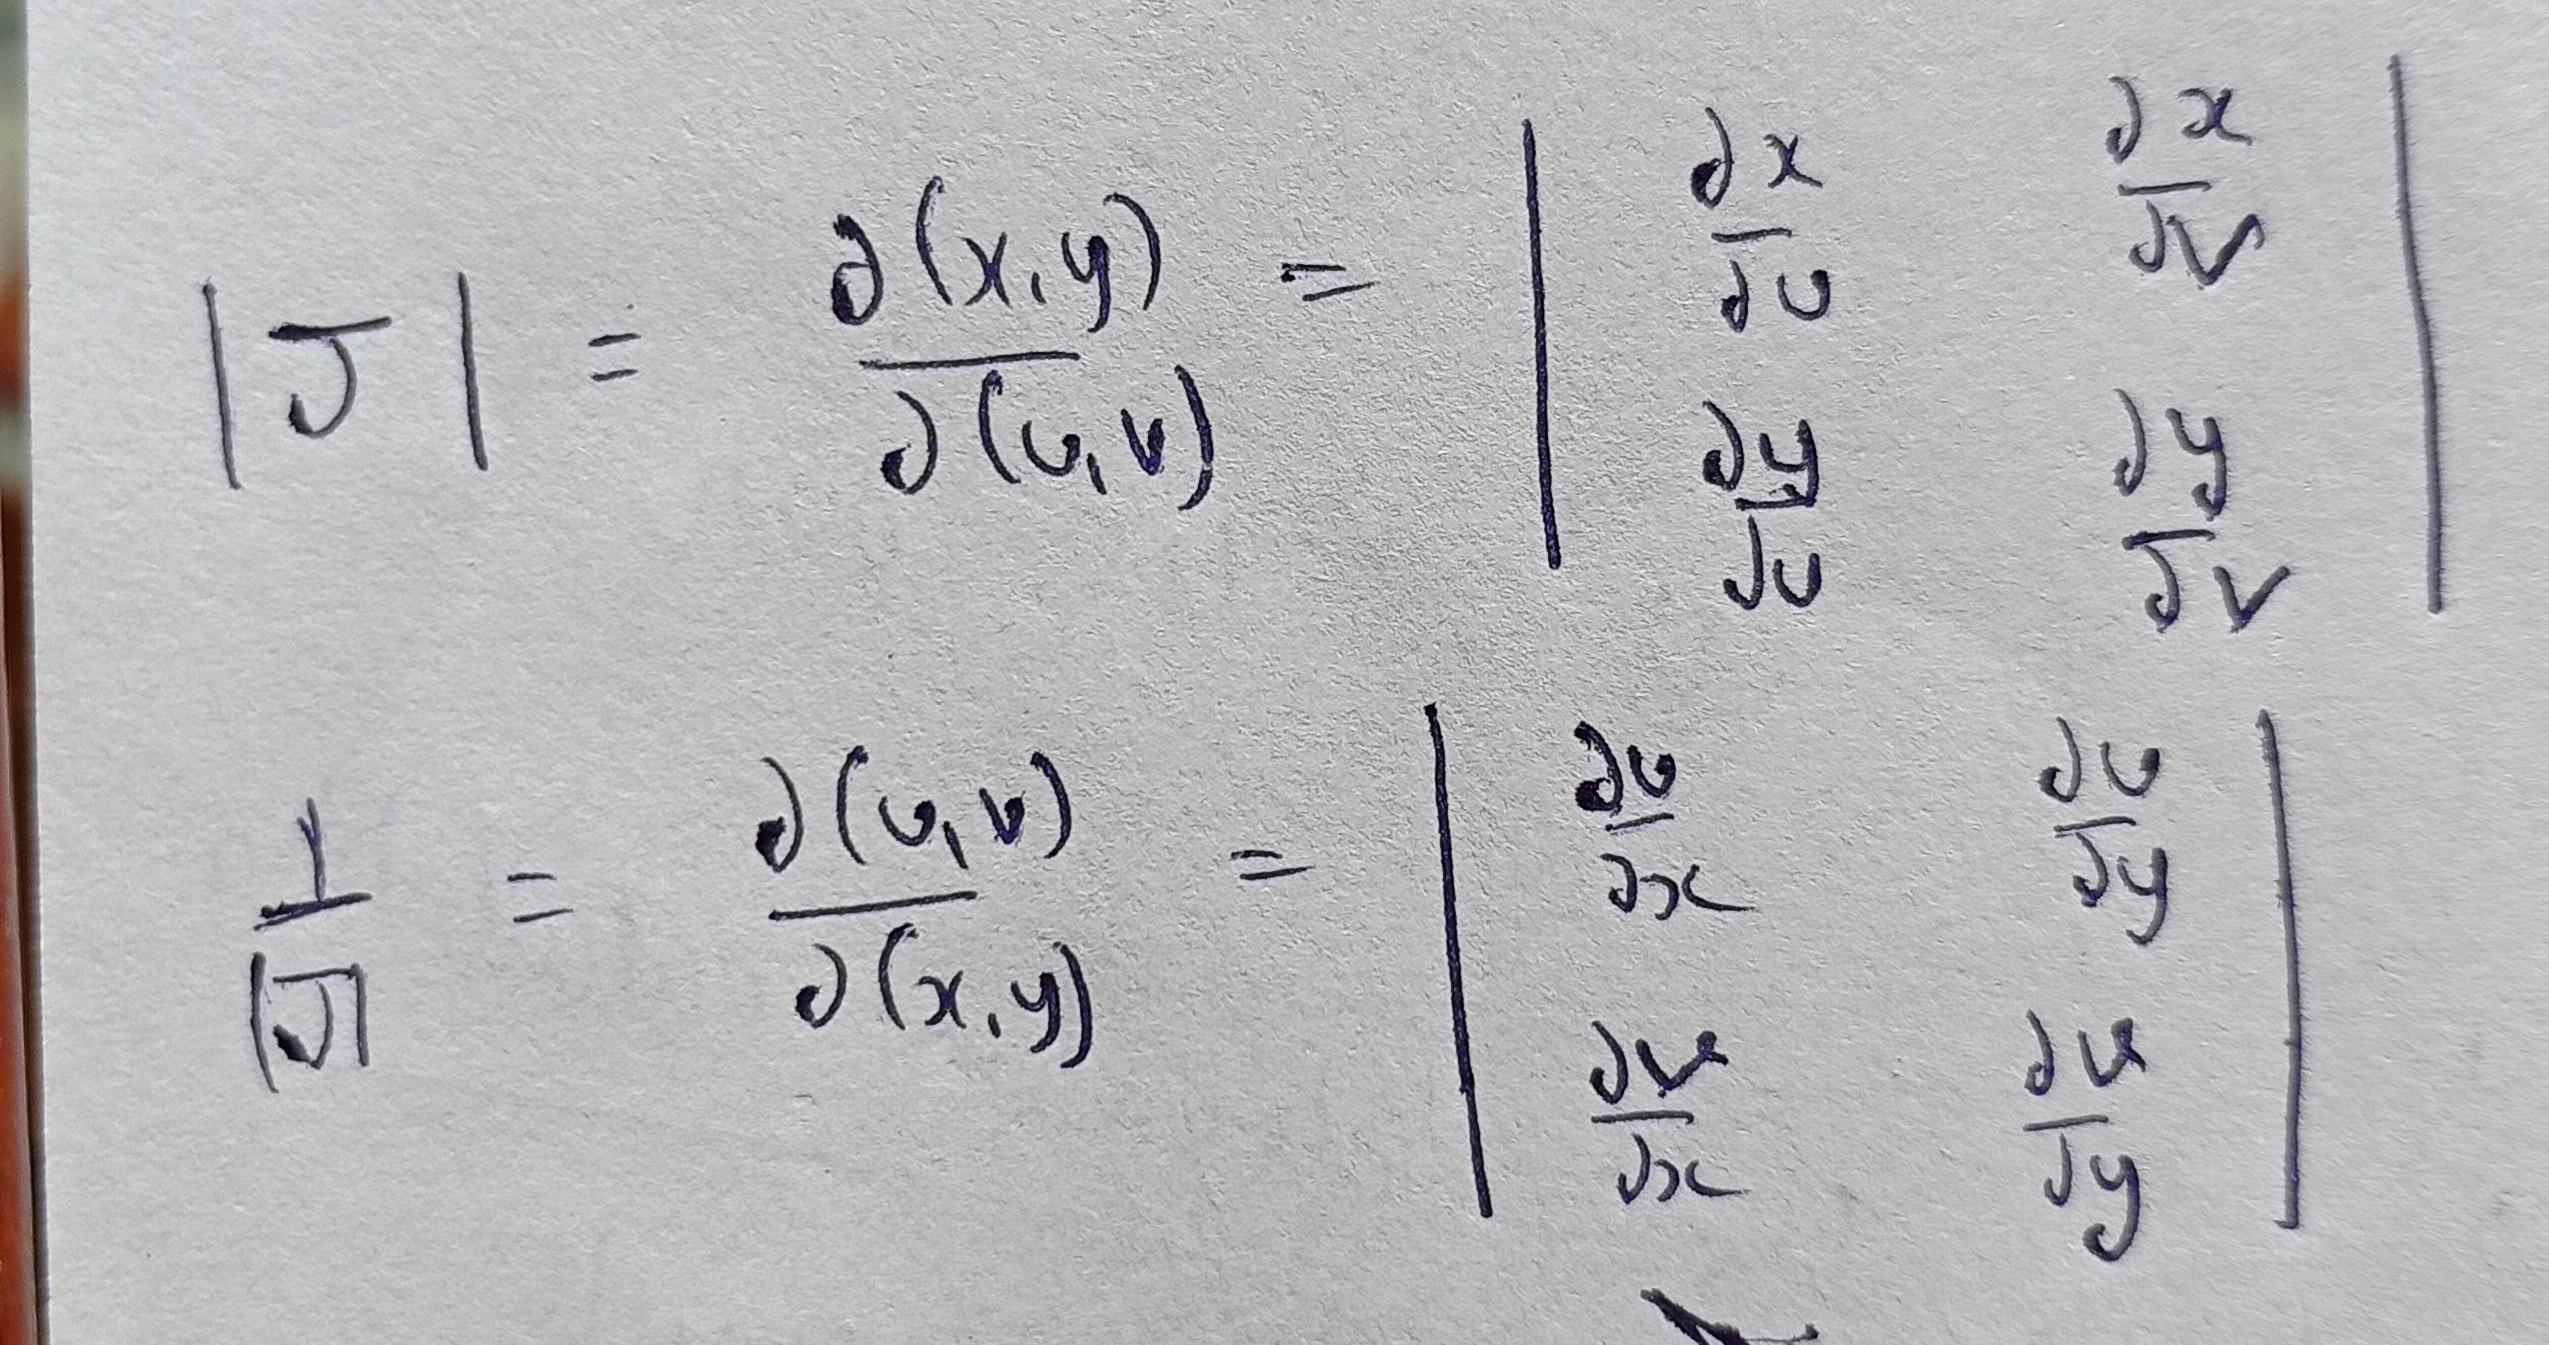 |J| = ∂(x,y)/∂(u,v) = | ∂x/∂u ∂x/∂v ; ∂y/∂u ∂y/∂v |
1/|J| = ∂(u,v)/∂(x,y) = | ∂u/∂x ∂u/∂y ; ∂v/∂x ∂v/∂y |